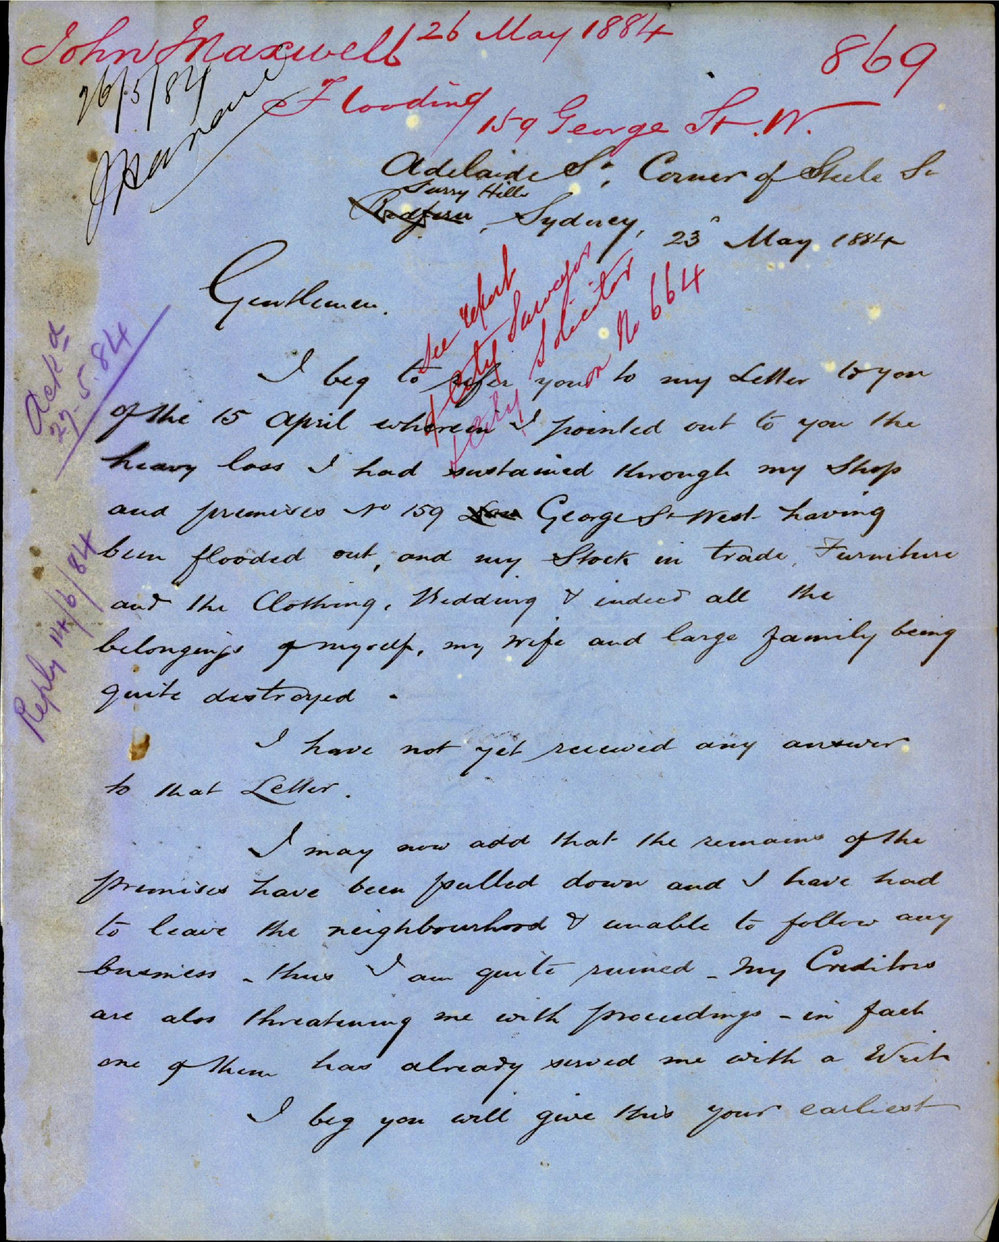 John Maxwell 26 May 1884
869
Flooding
159 George St. W.
26/5/84
Adelaide St, Corner of Steele St
Surry Hills
Redfern, Sydney,
23d May 1884
Gentlemen.
See report
of City Surveyor
& City Solicitor
on No 664
Ackd
27.5.84
Reply 14/6/84
I beg to refer you to my Letter to you
of the 15 April wherein I pointed out to you the
heavy loss I had sustained through my Shop
and premises No 159 George St West having
been flooded out, and my Stock in trade, Furniture
and the Clothing, Bedding & indeed all the
belongings of myself, my wife and large family being
quite destroyed.
I have not yet received any answer
to that Letter.
I may now add that the remains of the
premises have been pulled down and I have had
to leave the neighbourhood & unable to follow any
business - thus I am quite ruined - My Creditors
are also threatening me with proceedings - in fact
one of them has already served me with a Writ
I beg you will give this your earliest